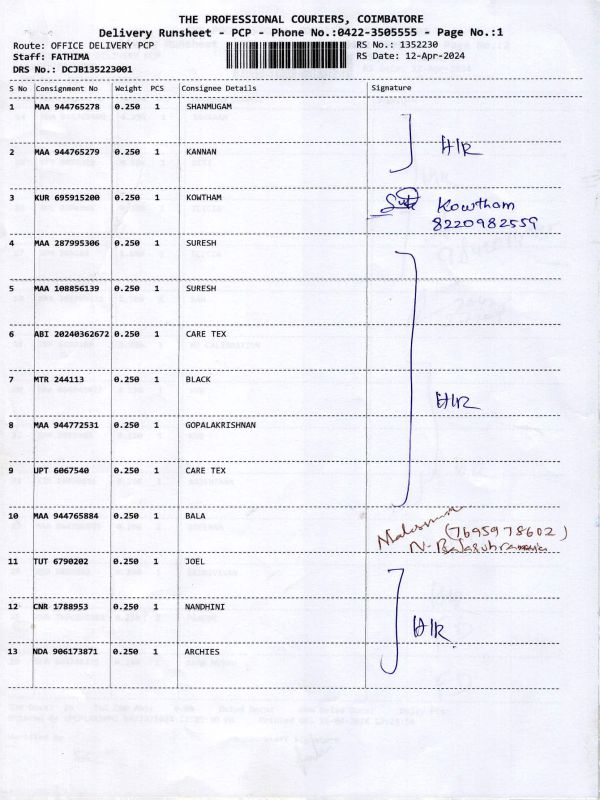 THE PROFESSIONAL COURIERS, COIMBATORE
Delivery Runsheet - PCP - Phone No.:0422-3505555 - Page No.:1
Route: OFFICE DELIVERY PCP RS No.: 1352230
Staff: FATHIMA RS Date: 12-Apr-2024
DRS No.: DCJB135223001
S No Consignment No Weight PCS Consignee Details Signature
1 MAA 944765278 0.250 1 SHANMUGAM
H/R
2 MAA 944765279 0.250 1 KANNAN
3 KUR 695915200 0.250 1 KOWTHAM Kowtham
8220982559
4 MAA 287995306 0.250 1 SURESH
5 MAA 108856139 0.250 1 SURESH
6 ABI 20240362672 0.250 1 CARE TEX
7 MTR 244113 0.250 1 BLACK
H/R
8 MAA 944772531 0.250 1 GOPALAKRISHNAN
9 UPT 6067540 0.250 1 CARE TEX
10 MAA 944765884 0.250 1 BALA (7695978602)
11 TUT 6790202 0.250 1 JOEL
12 CNR 1788953 0.250 1 NANDHINI
H/R
13 NDA 906173871 0.250 1 ARCHIES